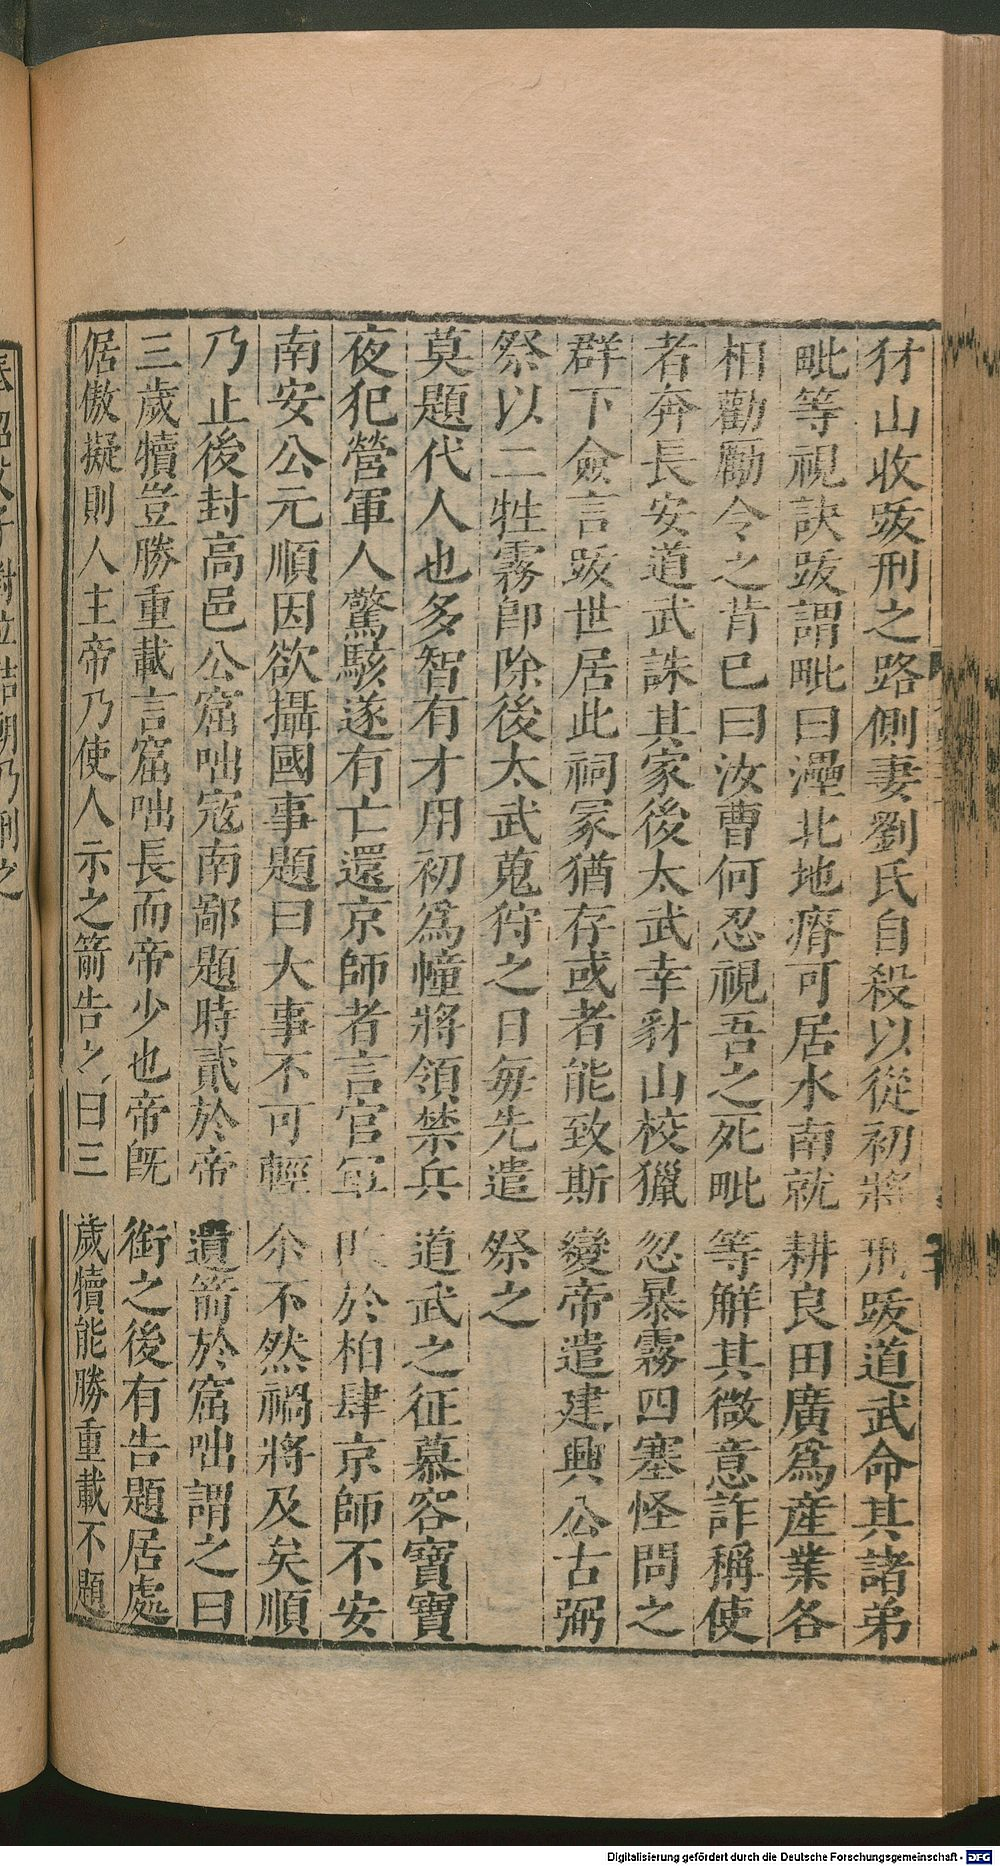 犲山收跋刑之路側妻劉氏自殺以從初將刑跋道武命其諸弟
毗等視訣跋謂毗曰㶟北地瘠可居水南就耕良田廣爲產業各
相勸勵令之背已曰汝曹何忍視吾之死毗等解其微意詐稱使
者奔長安道武誅其家後太武幸豺山校獵忽暴霧四塞怪問之
群下僉言跋世居此祠冢猶存或者能致斯變帝遣建興公古弼
祭以二牲霧卽除後太武蒐狩之日每先遣祭之
莫題代人也多智有才用初爲幢將領禁兵道武之征慕容寶寶
夜犯營軍人驚駭遂有亡還京師者言官軍於柏肆京師不安
南安公元順因欲攝國事題曰大事不可輕尒不然禍將及矣順
乃止後封高邑公窟咄寇南鄙題時貳於帝遺箭於窟咄謂之曰
三歲犢豈勝重載言窟咄長而帝少也帝旣銜之後有告題居處
倨傲擬則人主帝乃使人示之箭告之曰三歲犢能勝重載不題
Digitalisierung gefördert durch die Deutsche Forschungsgemeinschaft - DFG